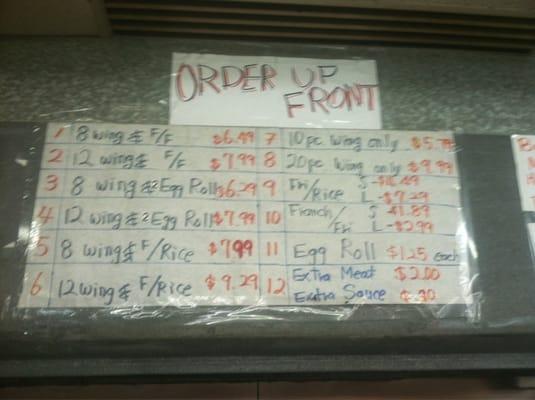 ORDER UP
FRONT
1 8 wing & F/F $6.49
2 12 wing & F/F $7.99
3 8 wing & 2 Egg Roll $6.29
4 12 wing & 2 Egg Roll $7.99
5 8 wing & F/Rice $7.99
6 12 wing & F/Rice $9.29
7 10 pc wing only $5.79
8 20pc wing only $9.99
9 Fri/Rice S - L - $7.29
10 Franch/Fri S - $1.89 L - $2.99
11 Egg Roll $1.25 each
12 Extra Meat $2.00
Extra Sauce $.30